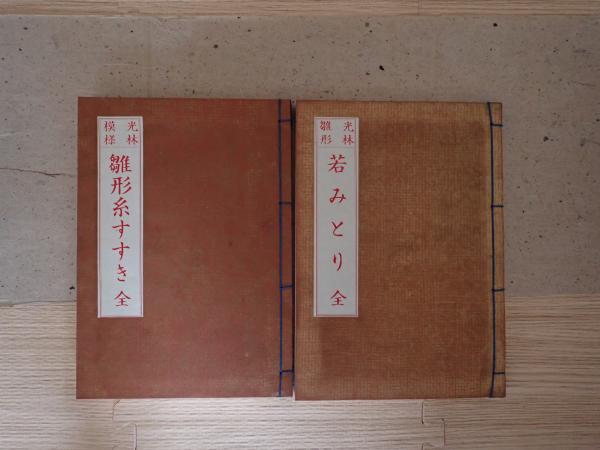 光林
模様
雛形糸すすき 全
光林
雛形
若みとり 全